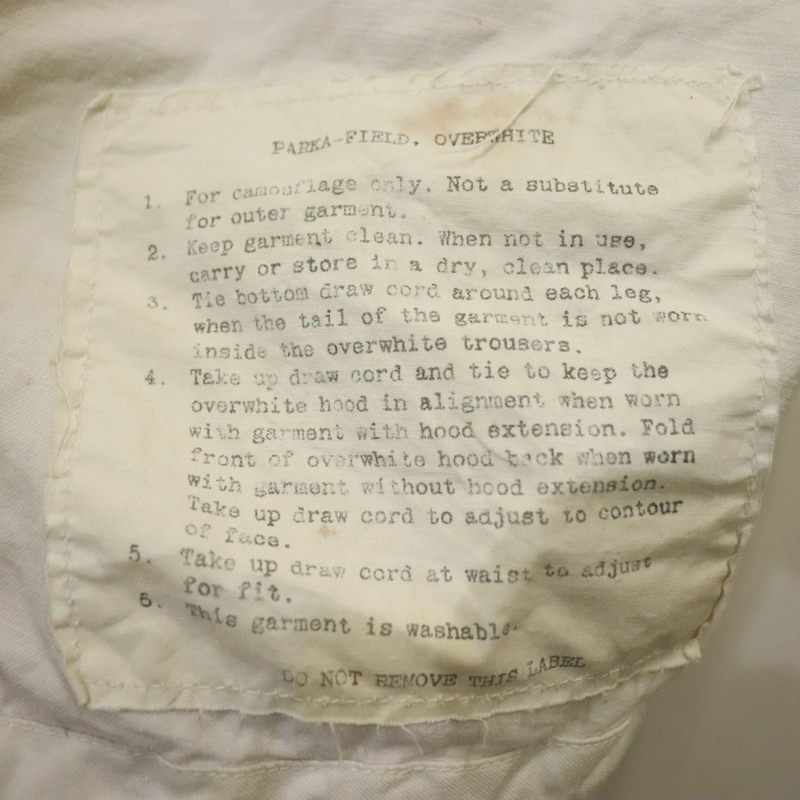 PARKA-FIELD, OVERWHITE
1. For camouflage only. Not a substitute
for outer garment.
2. Keep garment clean. When not in use,
carry or store in a dry, clean place.
3. Tie bottom draw cord around each leg,
when the tail of the garment is not worn
inside the overwhite trousers.
4. Take up draw cord and tie to keep the
overwhite hood in alignment when worn
with garment with hood extension. Fold
front of overwhite hood back when worn
with garment without hood extension.
Take up draw cord to adjust to contour
of face.
5. Take up draw cord at waist to adjust
for fit.
6. This garment is washable.
DO NOT REMOVE THIS LABEL